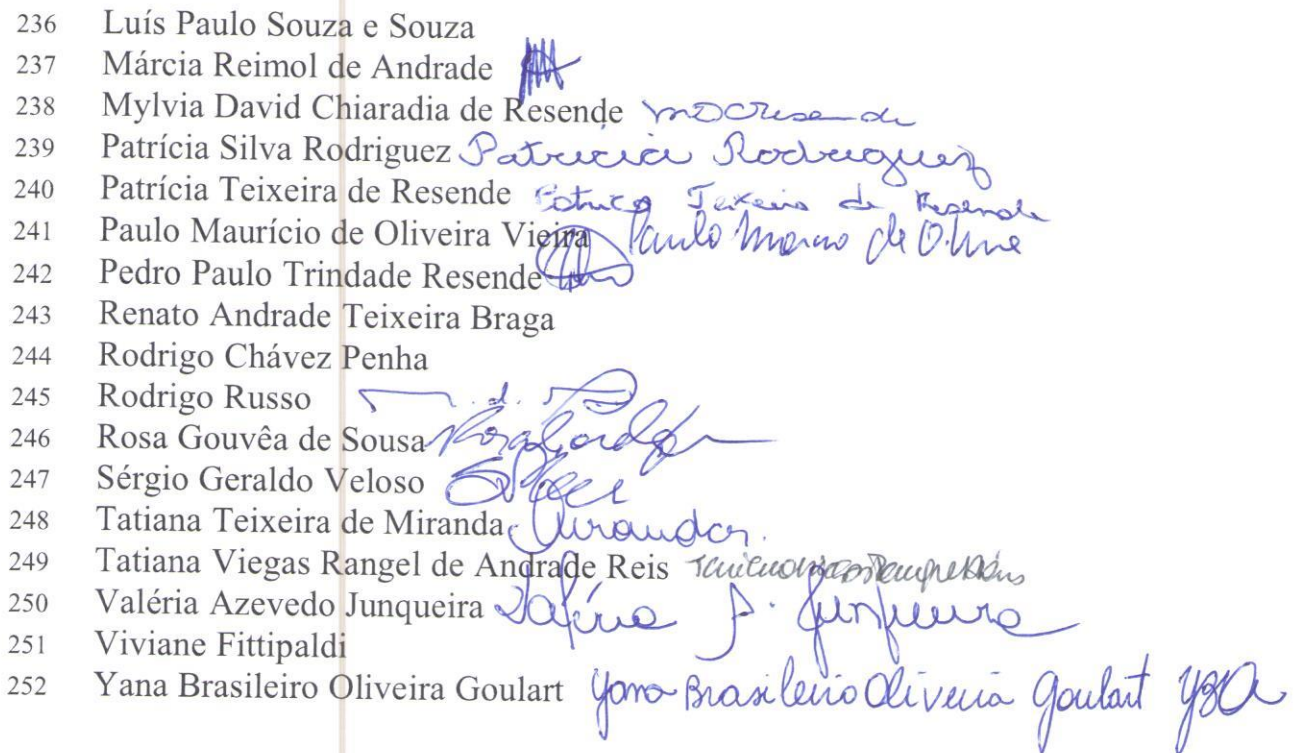 236 Luís Paulo Souza e Souza
237 Márcia Reimol de Andrade
238 Mylvia David Chiaradia de Resende MDCResende
239 Patrícia Silva Rodriguez Patricia Rodriguez
240 Patrícia Teixeira de Resende Patrica Teixeira de Resende
241 Paulo Maurício de Oliveira Vieira Paulo
242 Pedro Paulo Trindade Resende
243 Renato Andrade Teixeira Braga
244 Rodrigo Chávez Penha
245 Rodrigo Russo
246 Rosa Gouvêa de Sousa
247 Sérgio Geraldo Veloso
248 Tatiana Teixeira de Miranda Miranda.
249 Tatiana Viegas Rangel de Andrade Reis
250 Valéria Azevedo Junqueira Valéria A. Junqueira
251 Viviane Fittipaldi
252 Yana Brasileiro Oliveira Goulart Yana Brasileiro Oliveira Goulart YBO